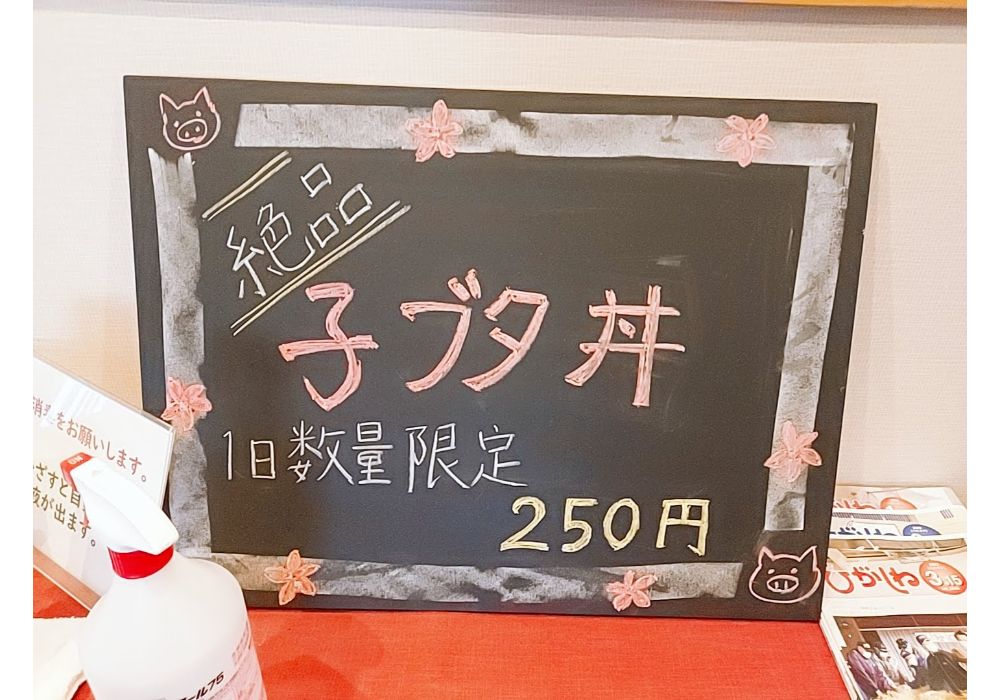 絶品
子ブタ丼
1日数量限定
250円
をお願いします。
ざすと自
液が出ます。
ール75
ひがしね
3.15